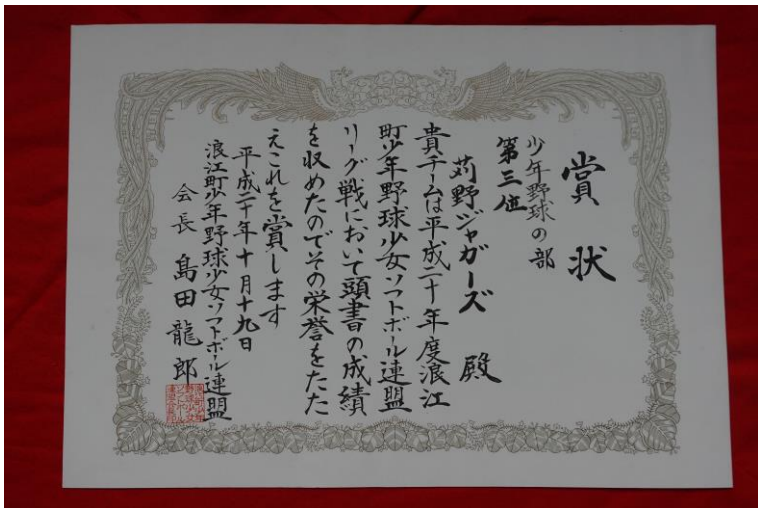 賞状
少年野球の部
第三位
苅野ジャガーズ 殿
貴チームは平成二十年度浪江
町少年野球少女ソフトボール連盟
リーグ戦において頭書の成績
を収めたのでその栄誉をたた
えこれを賞します
平成二十年十月十九日
浪江町少年野球少女ソフトボール連盟
会長 島田龍郎